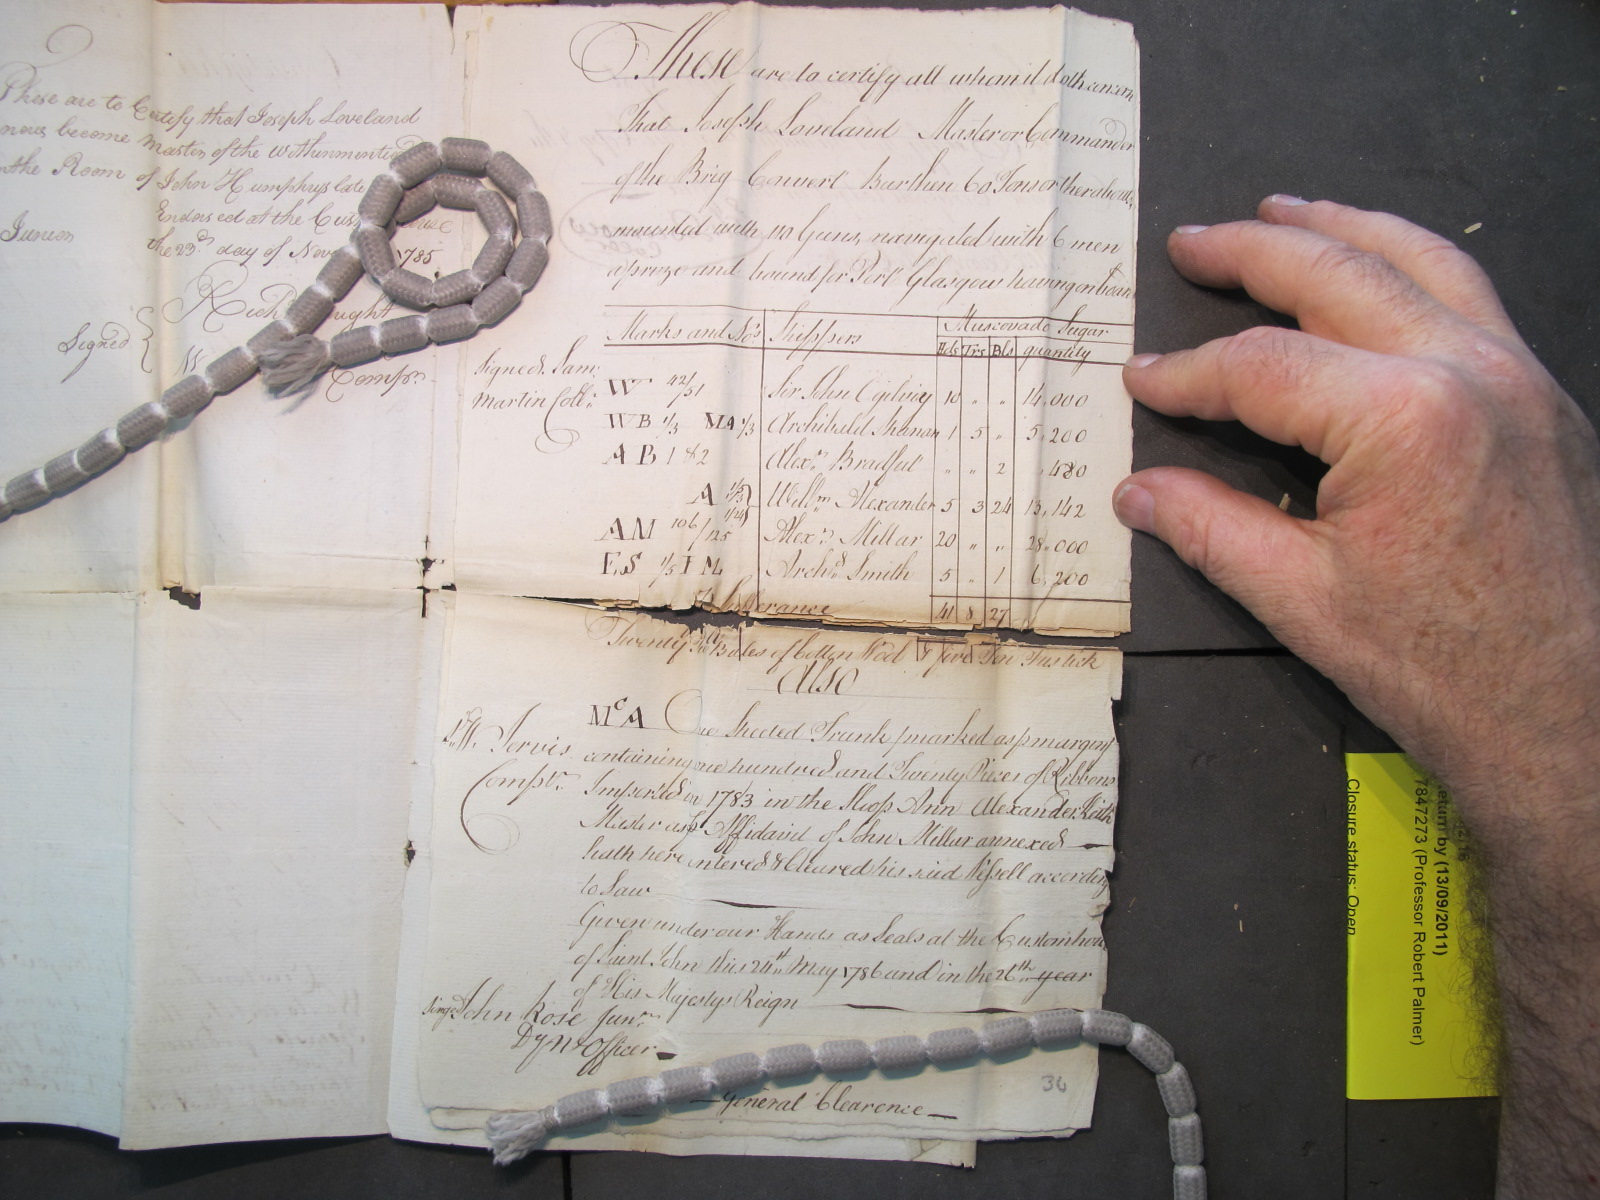 These are to Certify that Joseph Loveland
now become Master of the withinmention
the Room of John Humphrys late
Endorsed at the Cus
Junior
the 23d day of Nove 1785
Rich
Signed
W
Comptr
These are to certify all whom it doth concern
That Joseph Loveland Master or Commander
of the Brig Convert Burthen 60 Tons or thereabouts
mounted with no Guns, navigated with 6 men
a prize and bound for Port Glasgow having on board
Marks and No's Shippers Muscovado Sugar
Hds Trs Bls quantity
Signed Sam:
Martin Coll:
W 42/51 Sir John Ogilvie 10 " " 14,000
WB 1/3 MA 1/3 Archibald 1 5 " 5,200
AB 1 & 2 Alexr. 2 480
A 1/5 1/3 1/24 Willm Alexander 5 3 24 13,142
AM 106/125 Alexr. Millar 20 " " 28,000
F.S 1/5 I M Archd Smith 5 " 1 6,200
41 8 27
Sufferance
Twenty Bales of Cotton Wool & five Ton Fustick
Also
McA One Sheeted Trunk / marked as p margin/
W. Jervis
Comptr. containing one hundred and Twenty Pieces of Ribbons
Imported in 1783 in the Sloop Ann Alexander Keith
Master as p Affidavit of John Millar annexed
hath here entered & Cleared his said Vessell according
to Law
Given under our Hands as Seals at the Customhouse
of Saint John this 24th May 1786 and in the 26th year
of His Majestys Reign
Singed John Rose Junr.
Dy N Officer
General Clearence
36
eturn by (13/09/2011)
7847273 (Professor Robert Palmer)
Closure status: Open